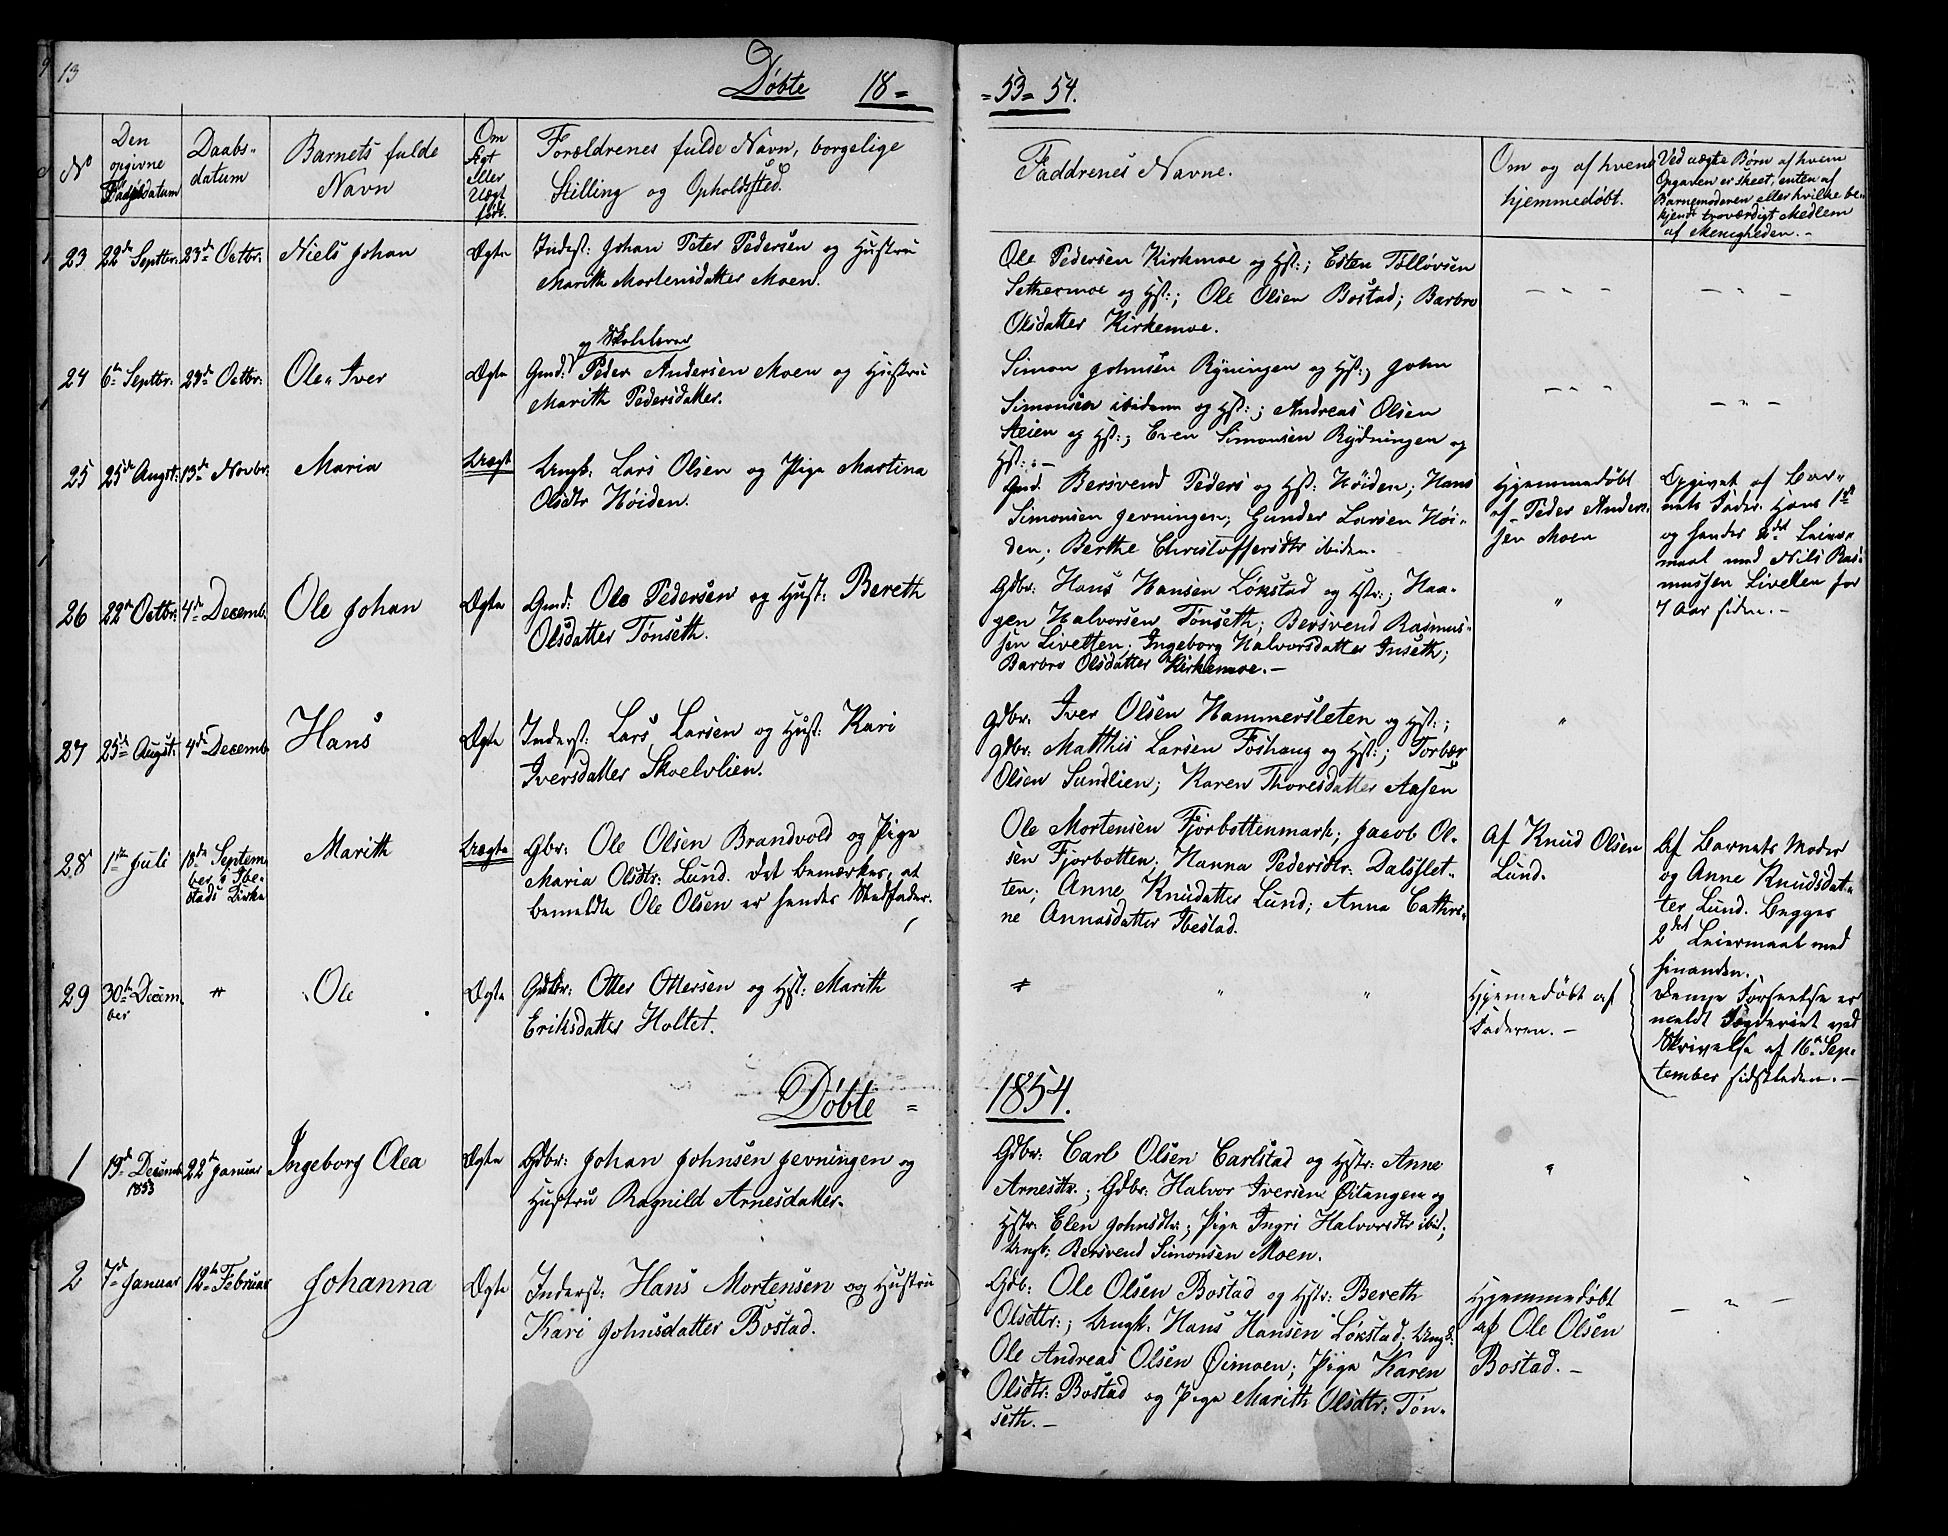 13
Døbte 18=
=53=54.
No
Den opgivne Fødselsdatum
Daabs-datum
Barnets fulde Navn
Om Ægt Eller Uægt født.
Forældrenes fulde Navn, borgelige Stilling og Opholdssted.
Faddrenes Navne.
Om og af hvem hjemmedøbt.
Ved uægte Børn af hvem Opgaven er skeet, enten af Barnemoderen eller hvilke bekjendt troværdigt Medlem af Menigheden. -
23 22de Septbr: 23de Octbr: Niels Johan Ægte
Inderst: Johan Peter Pedersen og Hustru
Marith Mortensdatter Moen.
Ole Pedersen Kirkmoe og Hst:; Esten Tølløvsen
Sethermoe og Hst:; Ole Olsen Bostad; Barbro
Olsdatter Kirkemoe.
24 6te Septbr: 23de Octbr: Ole Iver Ægte
og Skolelærer
Gmd: Peder Andersen Moen og Hustru
Marith Pedersdatter.
Simon Johnsen Ryningen og Hst:; John
Simonsen ibidem og Hst:; Andreas Olsen
Steien og Hst:; Even Simonsen Rydningen og
Hst: -
25 25de Augst: 13de Novbr: Maria Uægt
Ungk: Lars Olsen og Pige Martina
Olsdtr Høiden.
Gmd. Bersvend Peders og Hst: Høiden; Hans
Simonsen Jevningen; Gunder Larsen Høi-
den; Berthe Christoffersdtr ibiden.
Hjemmedøbt
af Peder Ander-
sen Moen
Opgivet af Bar-
nets Fader. Hans 1ste
og hendes 2det Leier-
maal med Nils Ras-
mussen Livelten for
7 Aar siden. -
26 22de Octbr: 4de Decemb. Ole Johan Ægte
Gmd: Ole Pedersen og Hust: Bereth
Olsdatter Tønseth.
Gdbr: Hans Hansen Løkstad og Hstr:; Haa-
gen Halvorsen Tønseth; Bersvend Rasmus-
sen Livelten; Ingeborg Halvorsdatter Inseth;
Barbro Olsdatter Kirkemoe. -
27 25de Augst: 4de Decemb. Hans Ægte
Inderst: Lars Larsen og Hust: Kari
Iversdatter Skoelvlien.
Gdbr: Iver Olsen Hammersleten og Hst:;
Gdbr: Matthis Larsen Foshaug og Hst:; Torbær
Olsen Sundlien; Karen Thoresdatter Aasen
28 1ste Juli 18de Septem-
ber i Ibe-
stads Kirke
Marith Uægte
Gbr: Ole Olsen Brandvold og Pige
Maria Olsdtr: Lund. Det bemærkes, at
bemeldte Ole Olsen er hendes Stedfader.
Ole Mortensen Fjorbottenmark; Jacob Ol-
sen Fjorbotten; Hanna Pedersdtr: Dalsslet-
ten; Anne Knudatter Lund; Anna Cathri-
ne Annasdatter Ibestad.
Af Knud Olsen
Lund.
Af Barnets Moder
og Anne Knudsdat-
ter Lund. Begges
2det Leiermaal med
hinanden.
Denne Forseelse er
meldt Fogderiet ved
Skrivelse af 16de Sep-
tember sidstleden. -
29 30te Decem-
ber
Ole Ægte
Gdbr: Otter Ottersen og Hst: Marith
Eriksdatter Holtet.
Hjemedøbt af
Faderen. -
Døbte =
1854.
1 19de Decemb 1853 22de Januar Ingeborg Olea Ægte
Gdbr: Johan Johnsen Jevningen og
Hustru Ragnild Arnesdatter.
Gdbr: Carl Olsen Carlstad og Hstr: Anne
Arnesdtr.; Gdbr: Halvor Iversen Øitangen og
Hstr: Elen Johnsdtr:; Pige Ingri Halvorsdtr ibid;
Ungk: Bersvend Simonsen Moen.
2 7de Januar 12te Februar Johanna Ægte
Inderst: Hans Mortensen og Hustru
Kari Johnsdatter Bostad.
Gdb: Ole Olsen Bostad og Hstr: Bereth
Olsdtr:; Ungk. Hans Hansen Løkstad; Ungk:
Ole Andreas Olsen Øimoen; Pige Karen
Olsdtr: Bostad og Pige Marith Olsdtr: Tøn-
seth. -
Hjemmedøbt
af Ole Olsen
Bostad. -